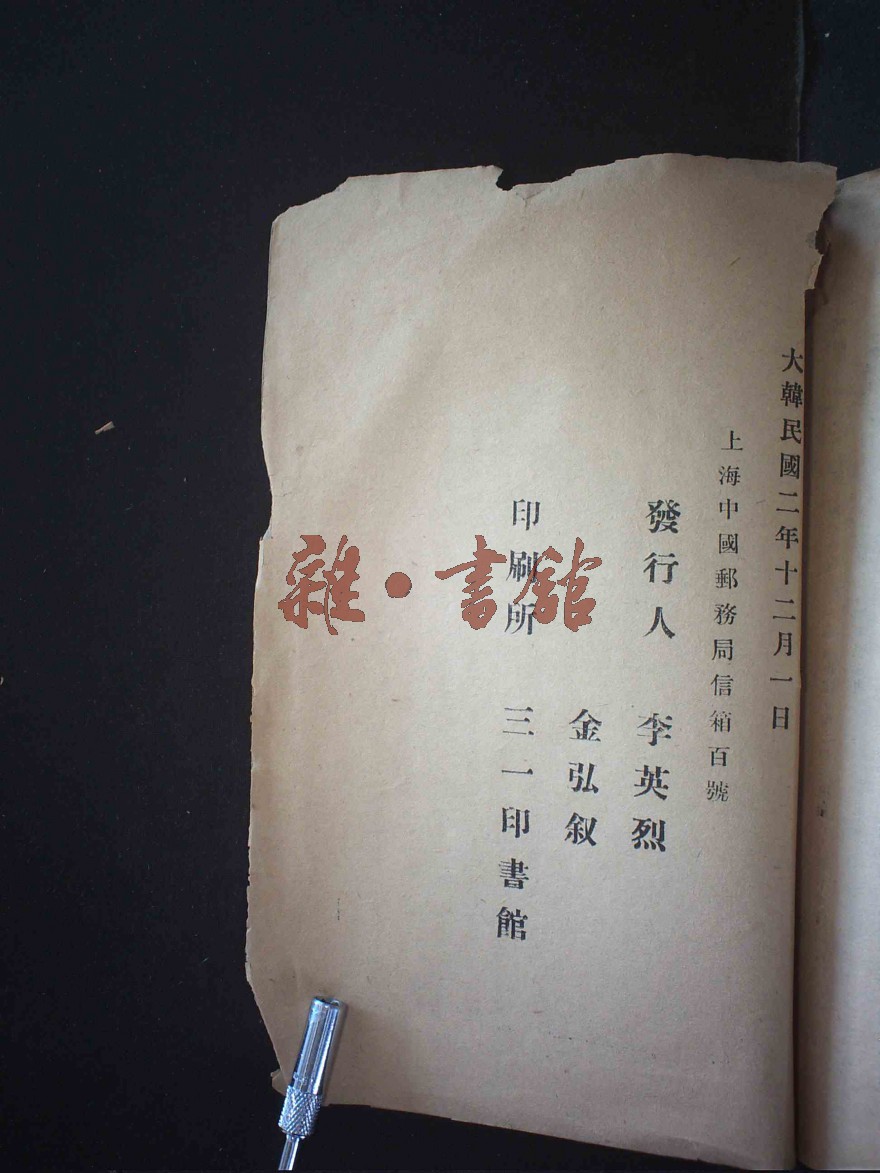 大韓民國二年十二月一日
上海中國郵務局信箱百號
發行人 李英烈
金弘叙
印刷所 三一印書館
雜·書館